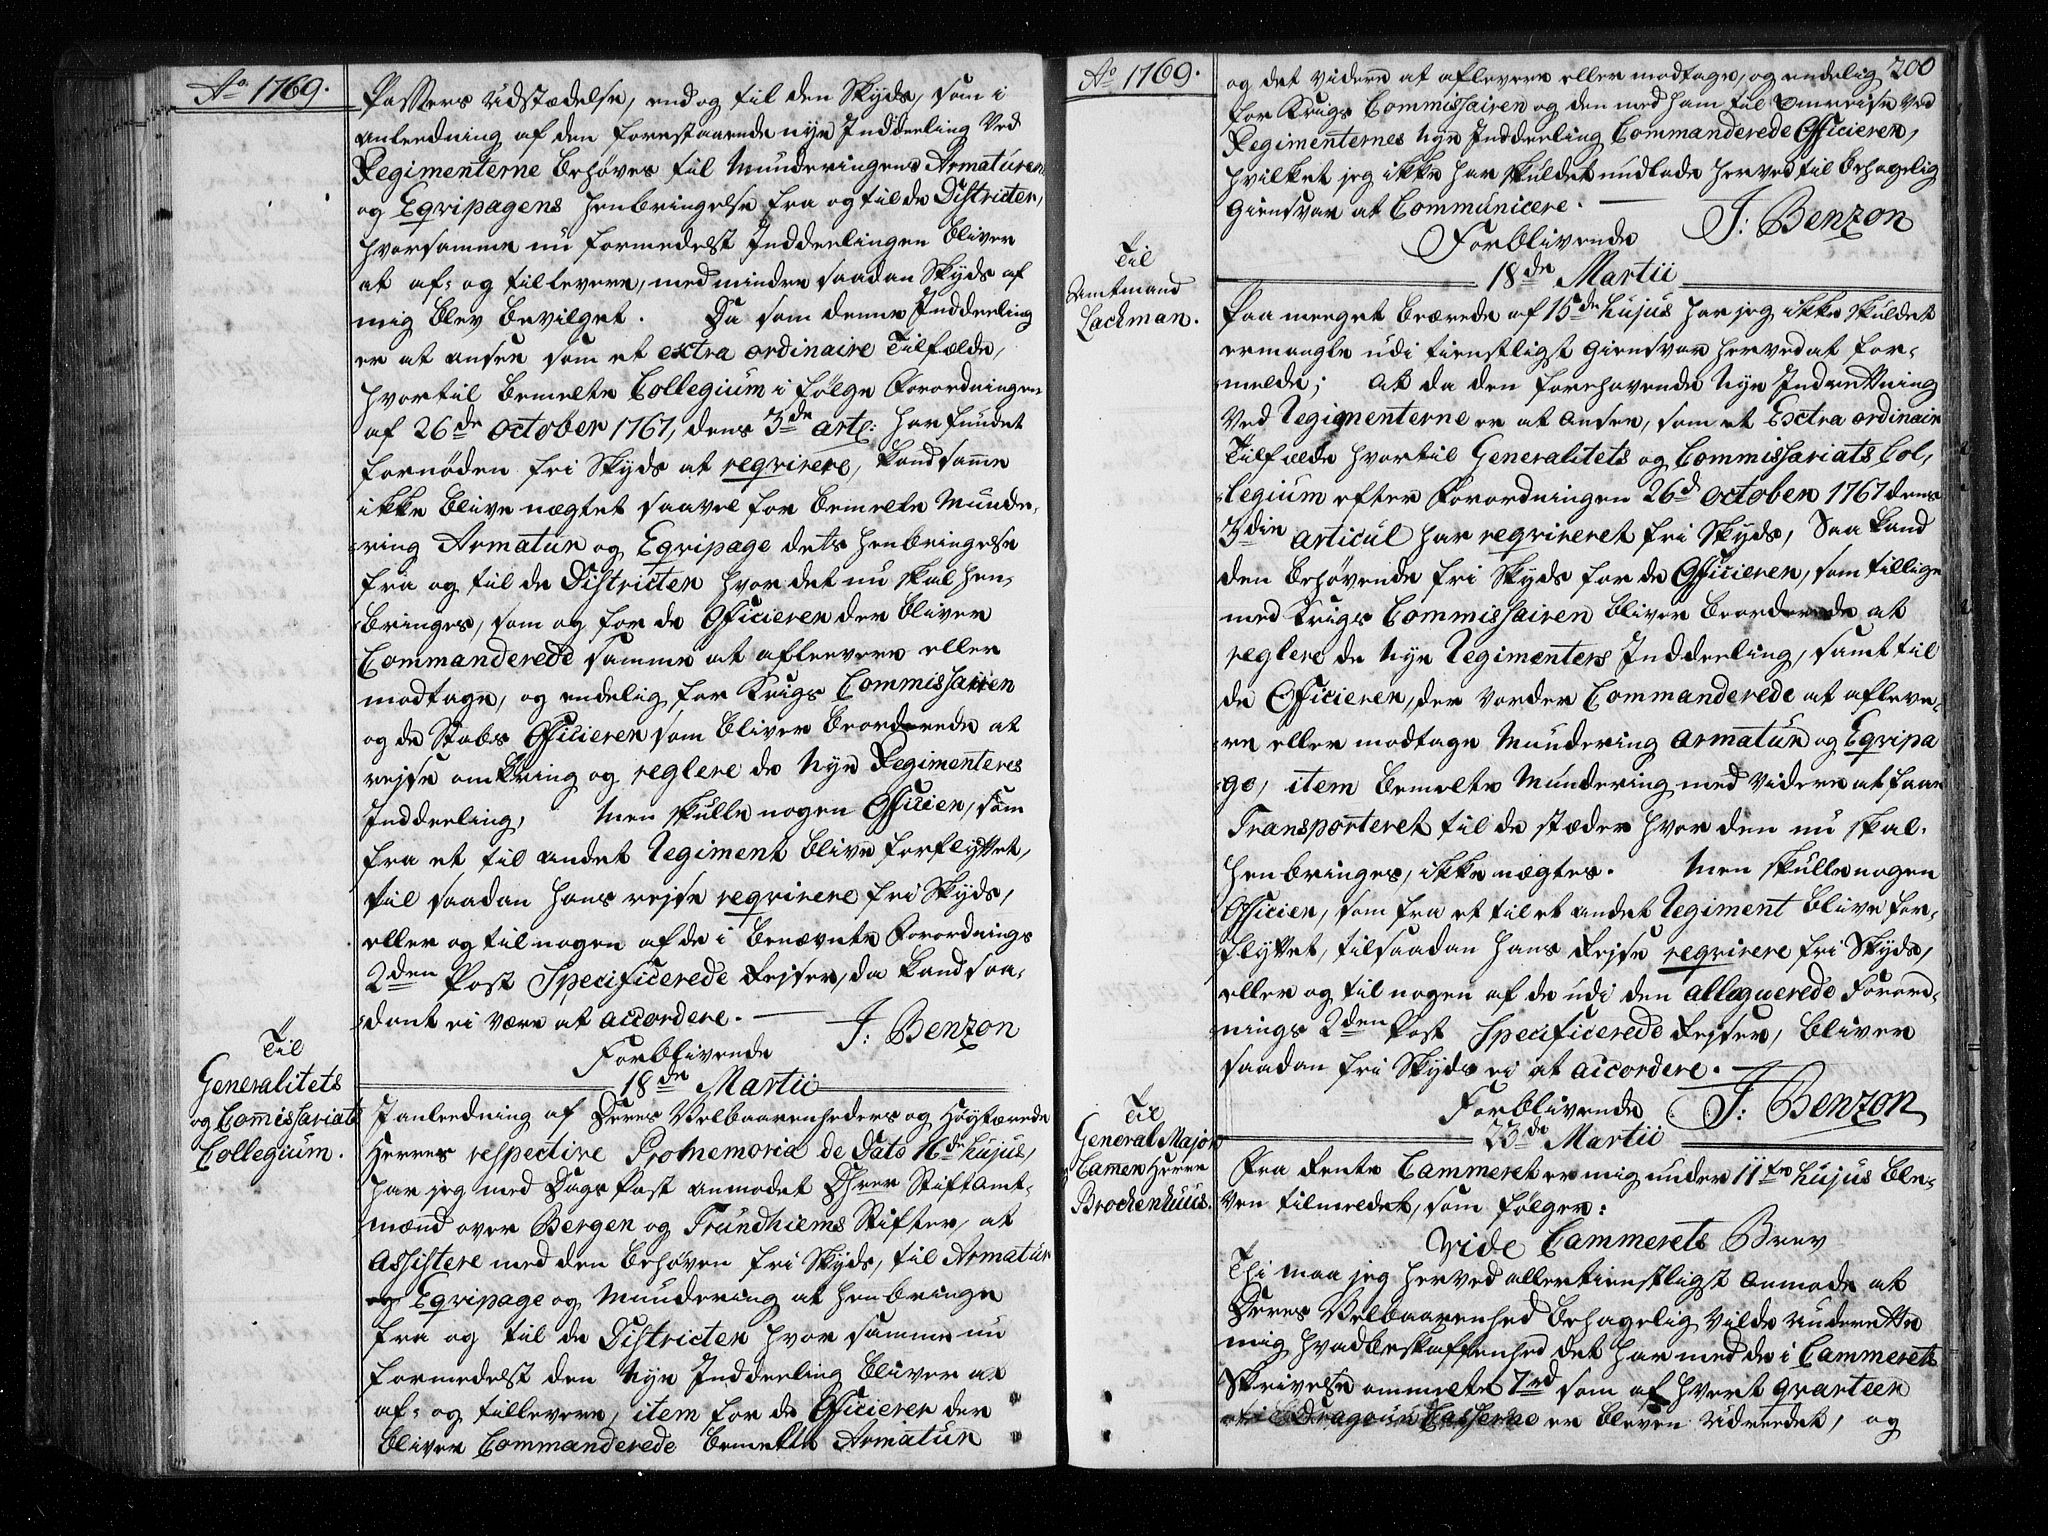 Ao 1769.
Passers Udstædelse, end og til den Skyds, som i
anledning af den forestaaende nye Inddeeling ved
Regimenterne behøves til Munderingens Armaturens
og Eqvipagens henbringelse fra og til de Districter,
hvorsamme nu formedelst Inddeelingen bliver
at af- og tillevere, med mindre saadan Skyds af
mig blev bevilget. Da som denne Inddeeling
er at ansee som et extra ordinaire Tilfælde,
hvortil bemelte Collegium i følge Forordningen
af 26de October 1767, dens 3de artl: har fundet
fornøden fri Skyds at reqvirere, kand samme
ikke blive nægtet saavel for bemelte Munde-
ring Armatur og Eqvipage dets henbringelse
fra og til de Districter hvor det nu skal hen-
bringes, som og for de Officierer der bliver
Commanderede samme at aflevere eller
modtage, og endelig for Krigs Commissairen
og de Stabs Officierer som bliver beordrede at
rejse omkring og reglere de Nye Regimenteres
Inddeeling, Men skulle nogen Officier, som
fra et til andet Regiment blive forflyttet,
til saadan hans rejse reqvirere fri Skyds,
eller og til nogen af de i benævnte Forordnings
2den Post Specificerede Rejser, da kand saa-
dant ei være at accordere.
Forblivende J: Benzon
18de Martii
Til
Generalitets
og Com̅issariats
Collegium.
I anleedning af Deres Velbaarenheders og Høyædle
Herrers respective Promemoria de Dato 16de hujus,
har jeg med Dags Post anmodet Dhrer Stiftamt-
mænd over Bergen og Trundhiems Stifter, at
assistere med den behøven fri Skyds, til Armatur
og Eqvipage og Mundering at henbringe
fra og til de Districter hvor samme nu
formedelst den Nye Inddeeling bliver at
af- og tillevere, item for de Officierer der
bliver Commanderede bemelte Armatur
Ao 1769.
200
og det videre at aflevere eller modtage, og endelig
for Krigs Commissairen og den med ham til omreise ved
Regimenternes Nye Inddeeling Commanderede Officierer,
hvilket jeg ikke har skuldet undlade herved til behagelig
Giensvar at Communicere.
Forblivende J: Benzon
18de Martii
Til
Amtmand
Lachman.
Paa meeget beærede af 15de hujus har jeg ikke skuldet
ermangle udi tienstligst Giensvar herved at for-
melde; At da den forehavende Nye Indretning
ved Regimenterne er at ansee, som et Extra ordinair
Tilfælde hvortil Generalitets og Commissariats Col-
legium efter Forordningen 26de October 1767 dens
3die articul har reqvireret fri Skyds, Saa kand
den behøvende fri Skyds for de Officierer, som tillige
med Krigs Commissairen bliver beordrede at
reglere de Nye Regimenters Inddeeling, samt til
de Officierer, der vorder Commanderede at afleve-
re eller modtage Mundering Armatur og Eqvipa
ge, item bemelte Mundering med videre at faae
Transporteret til de stæder hvor den nu skal
henbringes, ikke nægtes. Men skulle nogen
Officier, som fra et til et andet Regiment blive for-
flyttet, til saadan hans Rejse reqvirere fri Skyds,
eller og til nogen af de udi den alleguerede Forord-
nings 2den Post Specificerede Rejser, bliver
saadan fri Skyds ei at accordere.
Forblivende J: Benzon
23de Martii
Til
General Major
og Camer Herre
Brochenhuus.
Fra Rente Cammeret er mig under 11te hujus ble-
ven tilmeldet, som følger:
vide Cammerets Brev
Thi maa jeg herved allertienstligst anmode at
Deres Velbaarenhed behagelig vilde underrette
mig hvad beskaffenhed det har med de i Cammerets
Skrivelse ommelte 7rd som af hvert qvarteer
til Dragoun Casserne er bleven udreedet, og